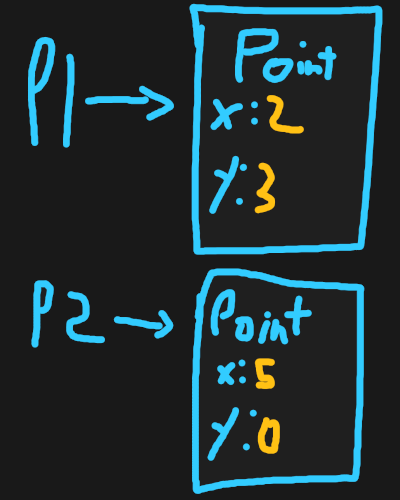 P1 → Point
x:2
y:3
P2 → Point
x:5
y:0